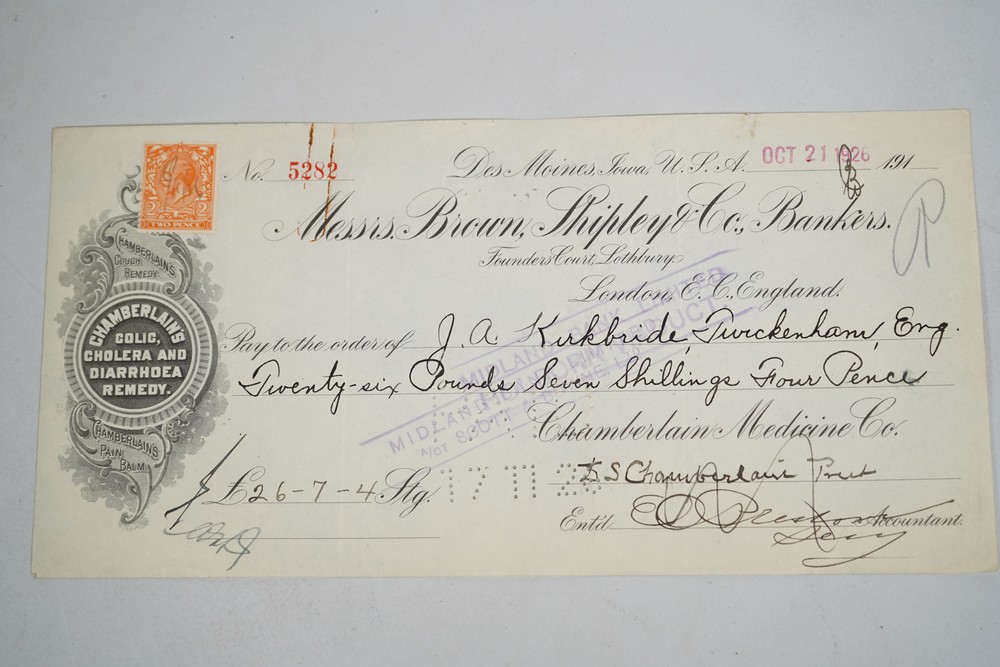 No. 5282
Des Moines, Iowa, U.S.A. OCT 21 1926 191
Messrs. Brown, Shipley & Co., Bankers.
Founders Court, Lothbury
London, E.C., England.
Pay to the order of J. A. Kirkbride, Twickenham, Eng.
Twenty-six Pounds Seven Shillings Four Pence
Chamberlain Medicine Co.
£26-7-4 Stg.
D S Chamberlain Prest
Ent'd Accountant.
Secy
TWO PENCE
2 2
CHAMBERLAIN'S
COUGH REMEDY.
CHAMBERLAIN'S
COLIC,
CHOLERA AND
DIARRHOEA
REMEDY.
CHAMBERLAIN'S
PAIN
BALM.
MIDLAND LIMITED
MIDLAND
A/OF SCOTT
17 11 26